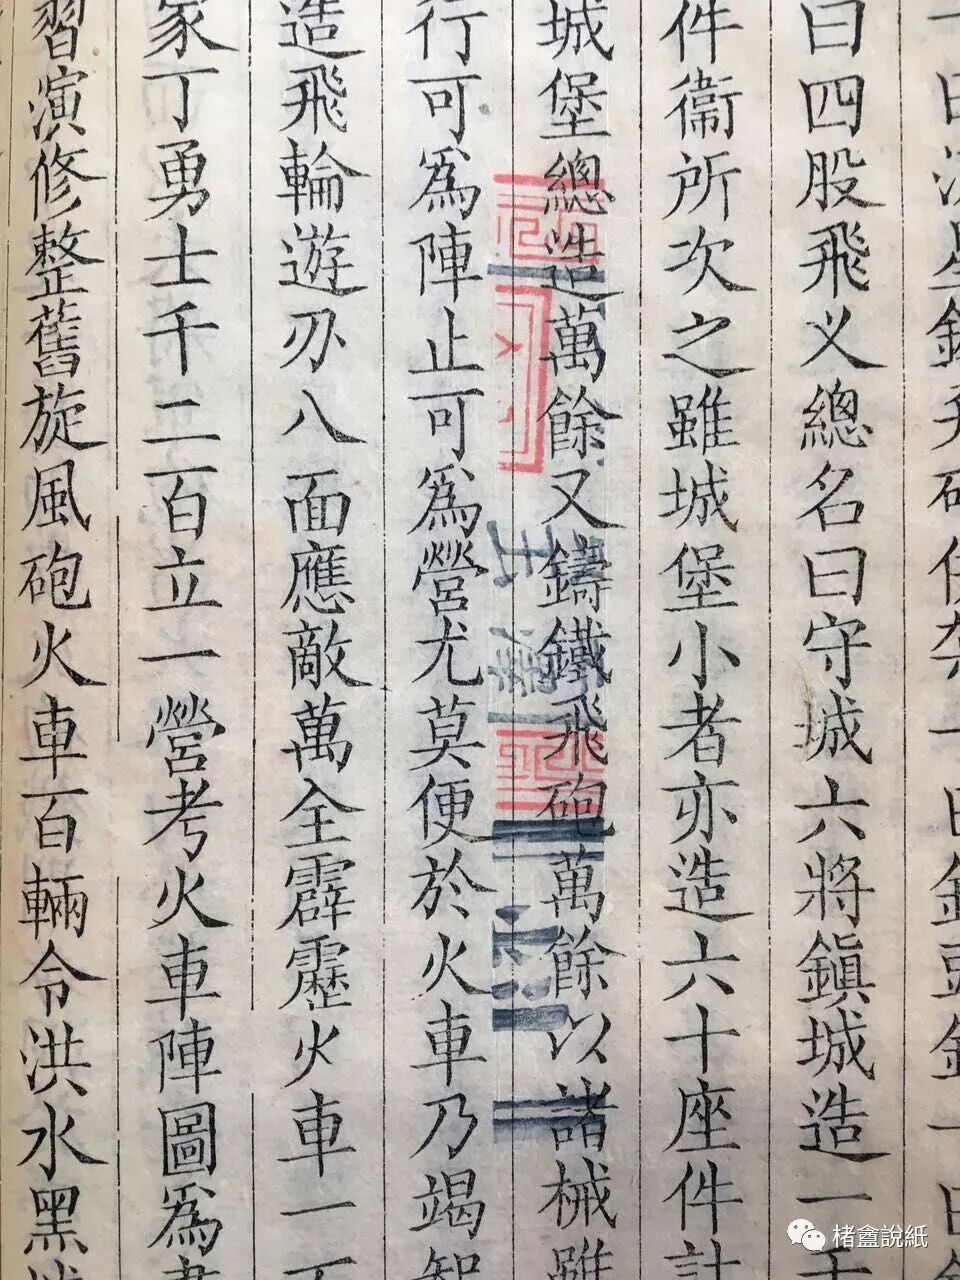 曰四股飛义總名曰守城六將鎮城造一
件衞所次之雖城堡小者亦造六十座件計
城堡總造萬餘又鑄鐵飛砲萬餘以諸械雖
行可為陣止可為營尤莫便於火車乃竭智
造飛輪遊刅八面應敵萬全霹靂火車一
家丁勇士千二百立一營考火車陣圖為
習演修整舊旋風砲火車百輛令洪水黑
楮盦說紙